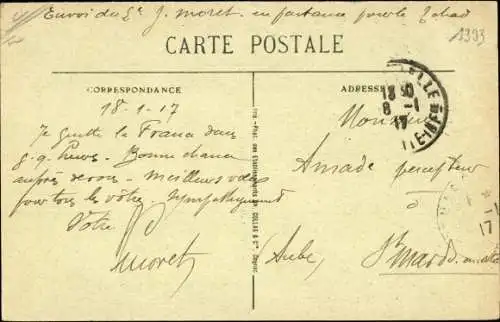 Envoi du Sr J. Moret en partance pour le Tchad
1393
CARTE POSTALE
CORRESPONDANCE
ADRESSE
18-1-17
Je quitte la France dans
q.q. heures. Bonne chance
auprès de vous. Meilleurs vœux
pour tous les vôtre. Sympathiquement
Votre
Moret
Monsieur
Amade percepteur
à
St Mards en
(Aube)
ELLE
13 30
8 -1
17
-1
17